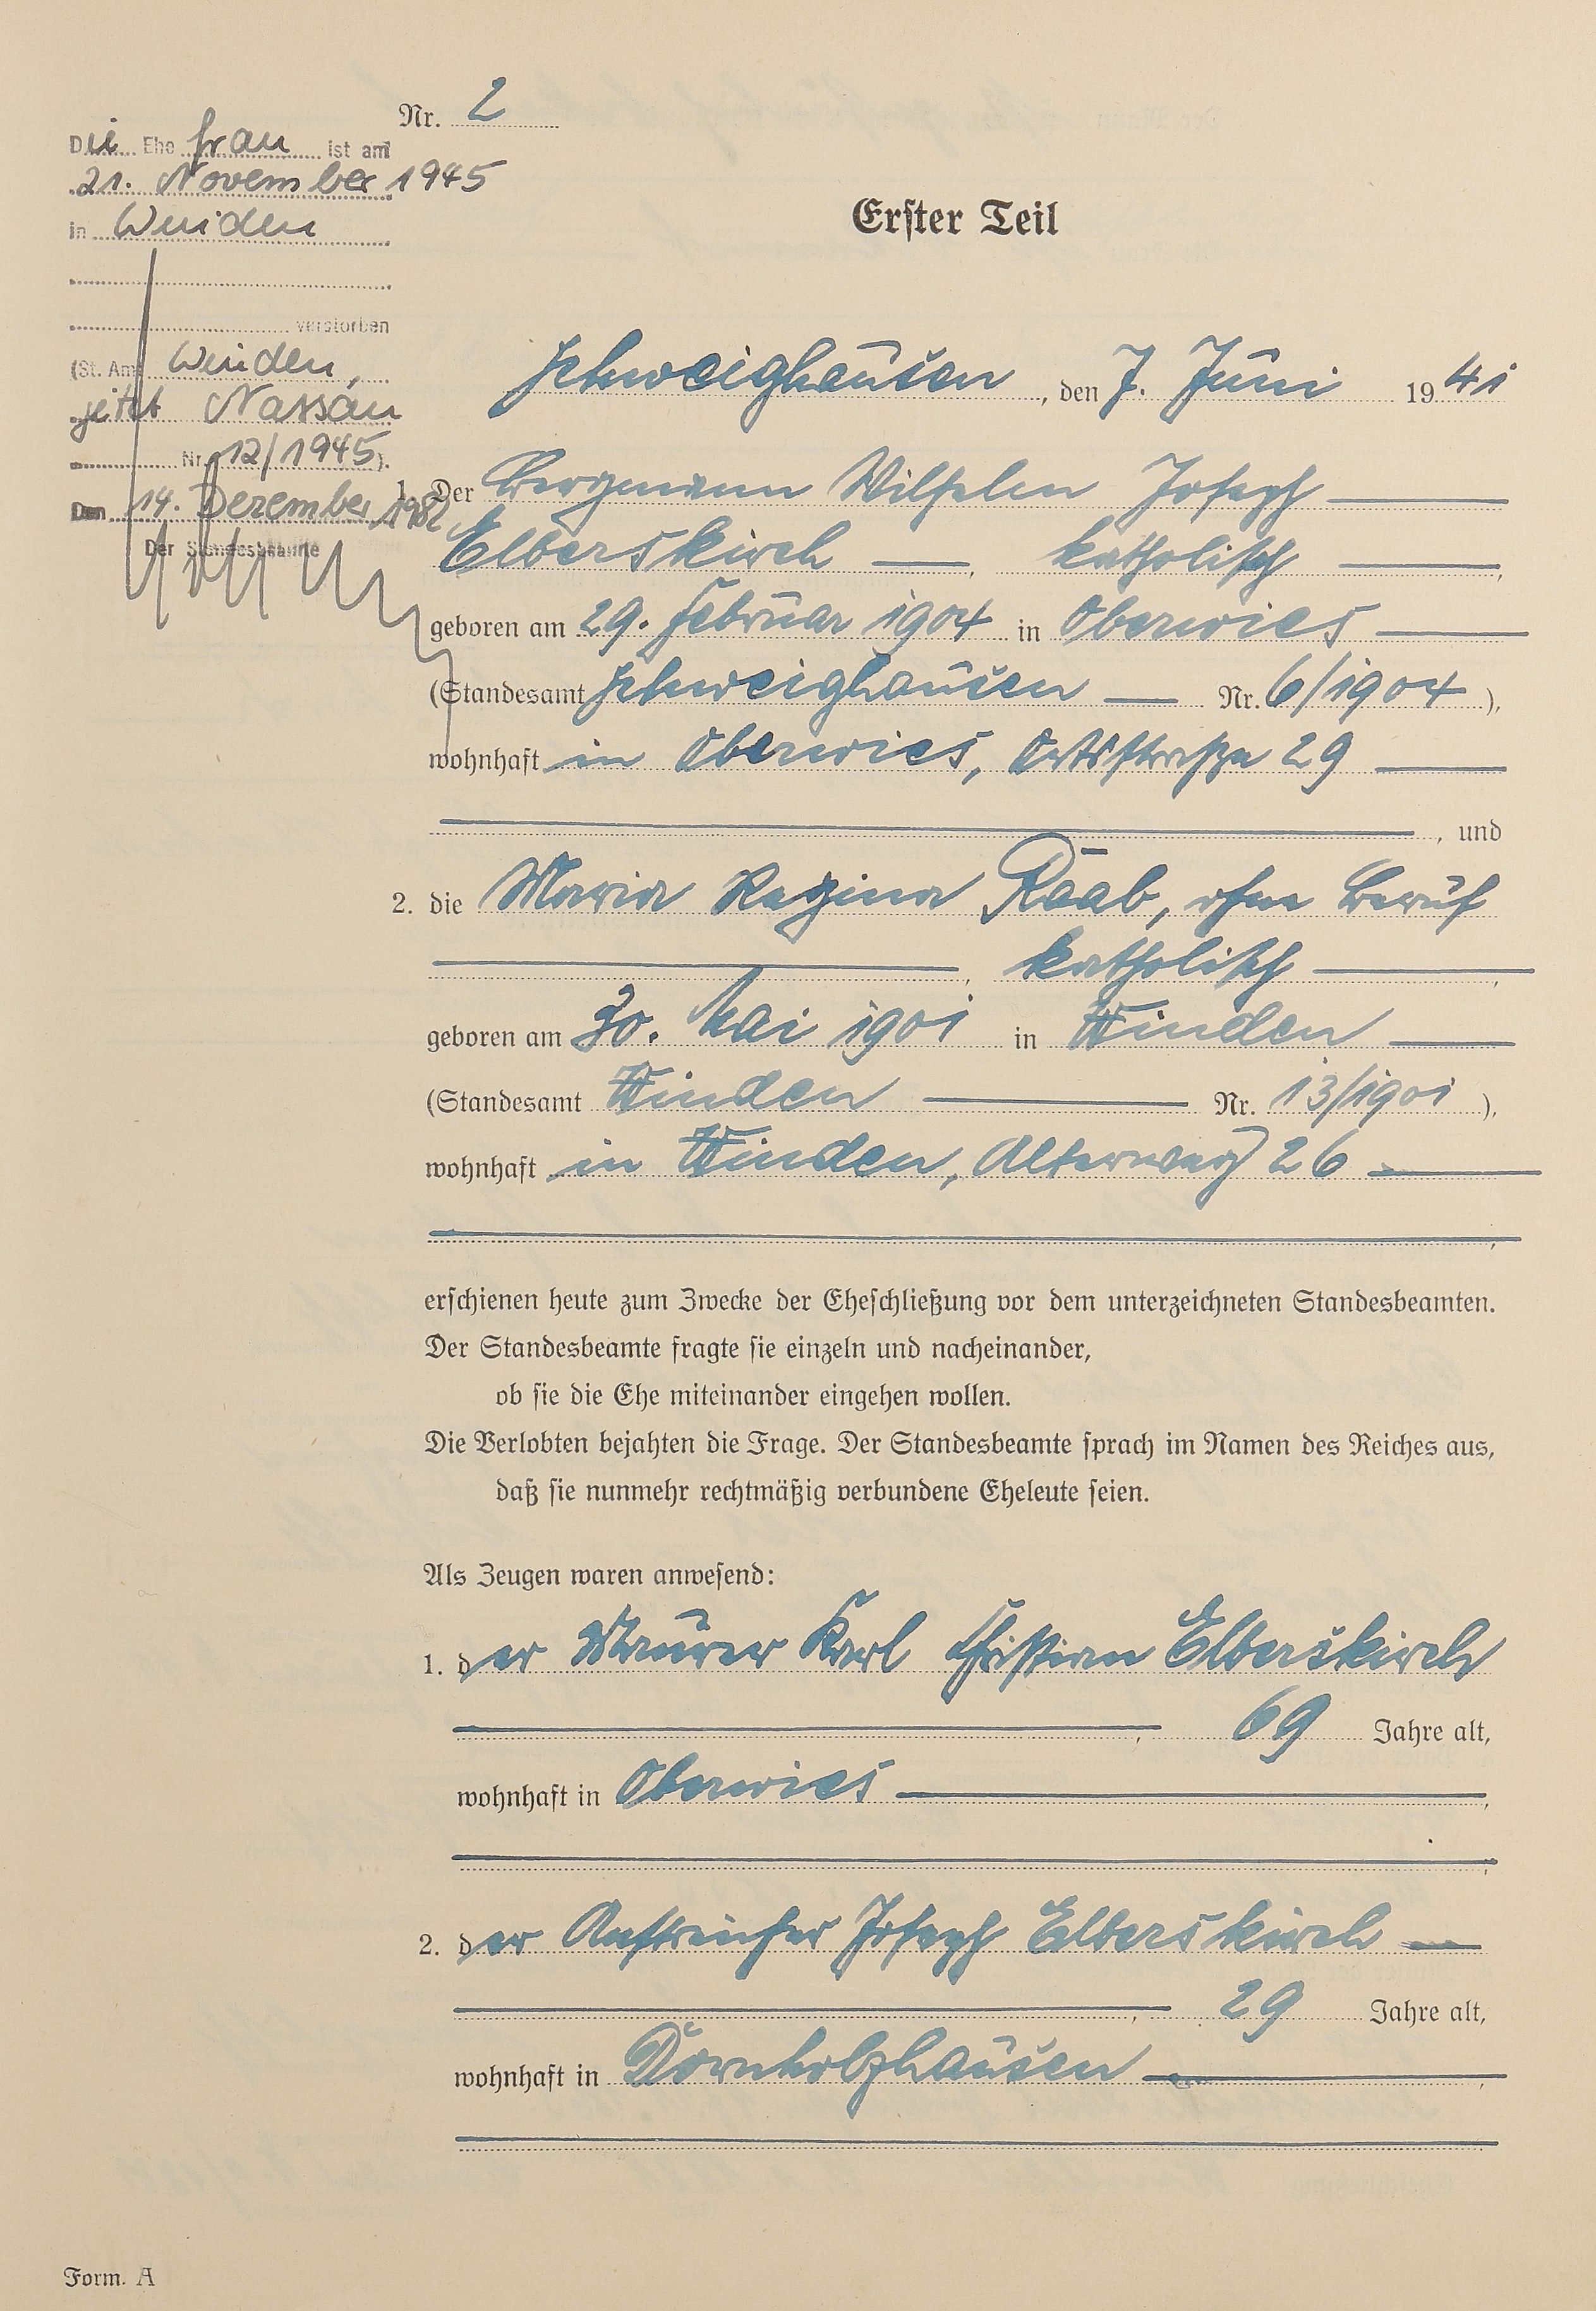 Nr. 2
Die Ehe frau ist am
21. November 1945
in Weiden
verstorben
(St. Amt Winden,
jetzt Nassau
Nr. 12/1945).
Den 14. Dezember 1982
Der Standesbeamte
Erster Teil
Schweighausen, den 7. Juni 1941
1. Der Bergmann Wilhelm Joseph
Elberskirch, katholisch,
geboren am 29. Februar 1904 in Oberwies
(Standesamt Schweighausen Nr. 6/1904),
wohnhaft in Oberwies, Ortsstraße 29
, und
2. die Maria Regina Raab, ohne Beruf
, katholisch,
geboren am 30. Mai 1901 in Winden
(Standesamt Winden Nr. 13/1901),
wohnhaft in Winden, Alterweg 26
,
erschienen heute zum Zwecke der Eheschließung vor dem unterzeichneten Standesbeamten.
Der Standesbeamte fragte sie einzeln und nacheinander,
ob sie die Ehe miteinander eingehen wollen.
Die Verlobten bejahten die Frage. Der Standesbeamte sprach im Namen des Reiches aus,
daß sie nunmehr rechtmäßig verbundene Eheleute seien.
Als Zeugen waren anwesend:
1. der Maurer Karl Christian Elberskirch
, 69 Jahre alt,
wohnhaft in Oberwies,
,
2. der Anstreicher Joseph Elberskirch
, 29 Jahre alt,
wohnhaft in Dornholzhausen,
Form. A